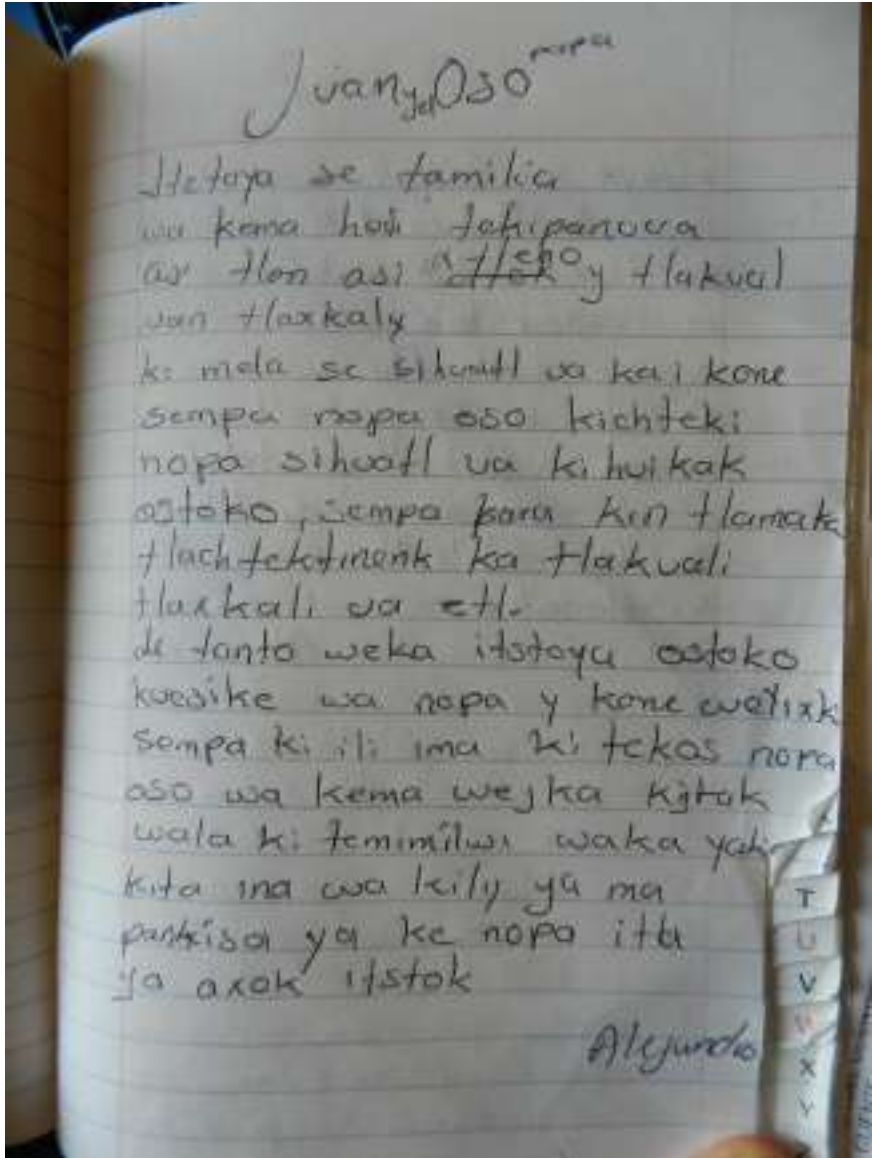 Juan y el Oso nopa
Itstoya se familia
wa kema hosi tekipanova
as tlon asi atleno y tlakual
van tlaxkaly
ki mela se sihuatl va kai kone
sempa nopa oso kichteki
nopa sihuatl va ki huikak
ostoko, sempa para kin tlamaka
tlachtektinenk ka tlakuali
tlaxkali va etl.
de tanto weka itstoya ostoko
kuesike wa nopa y kone
sempa ki ili ima ki tekas nopa
oso wa kema wejka
wala ki temimilwi waka yah
kita ina wa kily ya ma
pankisa ya ke nopa itta
ya axok itstok
Alejandro
T
U
V
X
Y